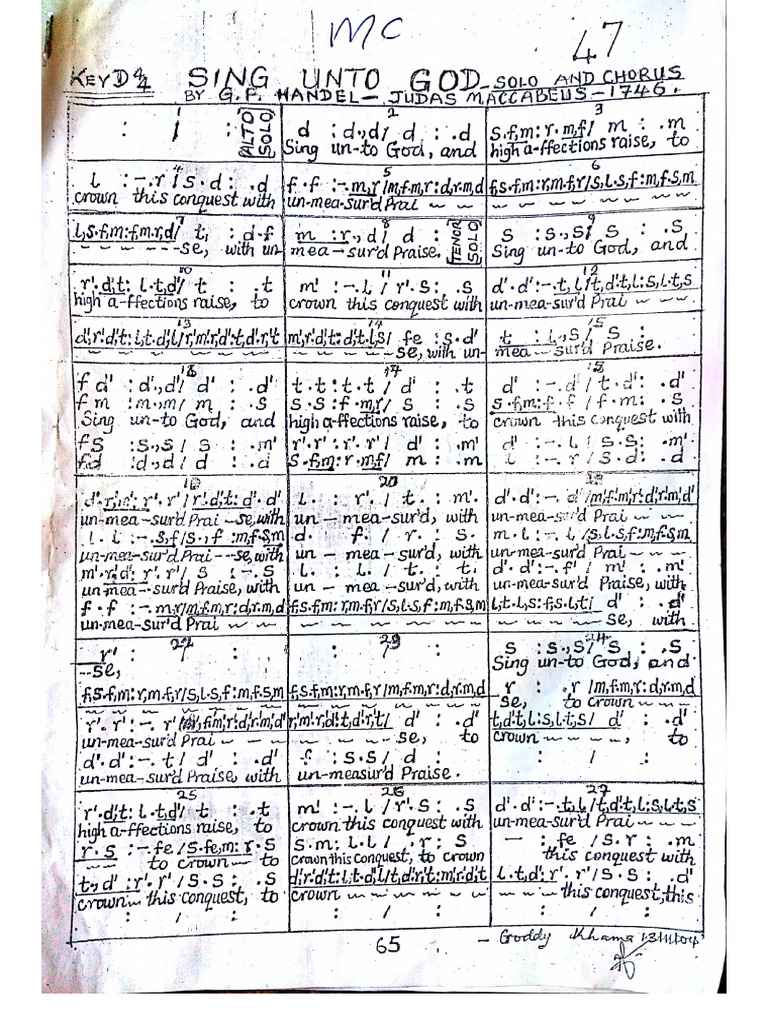 MC
47
KEY D 4/4 SING UNTO GOD - SOLO AND CHORUS
BY G. F. HANDEL - JUDAS MACCABEUS - 1746.
: / : ALTO SOLO
2
d : d.,d / d : .d
Sing un-to God, and
3
s.f,m: r.m,f / m : .m
high a-ffections raise, to
4
l : -.r / s.d : .d
crown this conquest with
5
f.f : -.m,r / m,f,m,r : d,r,m,d
un-mea-sur'd Prai ~ ~ ~
6
f,s,f,m : r,m,f,r / s,l,s,f : m,f,s,m
7
l,s,f,m : f,m,r,d / t, : d.f
- - - - - se, with un-
8
m : r.,d / d : TENOR SOLO
mea-sur'd Praise.
9
s : s.,s / s : .s
Sing un-to God, and
10
r'.d',t : l.t,d' / t : .t
high a-ffections raise, to
11
m' : -.l / r'.s : .s
crown this conquest with
12
d'.d' : -.t,l / t,d',t,l : s,l,t,s
un-mea-sur'd Prai ~ ~ ~
13
14
se, with un-
15
t : l.,s / s :
mea-sur'd Praise.
16
f d' : d'.,d' / d' : .d'
f m : m.,m / m : .s
Sing un-to God, and
f s : s.,s / s : .m'
f d : d.,d / d : .d
17
t.t : t.t / d' : .t
s.s : f.m,r / s : .s
high a-ffections raise, to
r'.r' : r'.r' / d' : .m'
s.f,m : r.m,f / m : .m
18
d' : -.d' / t.d' : .d'
s.f,m : f.f / f.m : .s
crown this conquest with
d' : -.l / s.s : .m'
l : -.r / s.d : .d
un-mea-sur'd Prai --se, with
un-mea-sur'd Prai --se, with
un-mea-sur'd Praise, with
un-mea-sur'd Prai ~ ~ ~
20
l. : r'. / t. : m'.
un - mea-sur'd, with
d. f. / r. : s.
un - mea - sur'd, with
l. : l. / t. : t.
un - mea -sur'd, with
f,s,f,m : r,m,f,r / s,l,s,f : m,f,s,m
un-mea-sur'd Prai ~
un-mea-sur'd Prai ~ ~ ~
d'.d' : -.f' / m' : .m'
un-mea-sur'd Praise, with
l,t,l,s : f,s,l,t / d' : .d'
se, with
r' : / :
--se,
f,s,f,m : r,m,f,r / s,l,s,f : m,f,s,m
un-mea-sur'd Prai ~ ~ ~
d'.d' : -.t / d' : .d'
un-mea-sur'd Praise, with
23
: / :
f,s,f,m : r,m,f,r / m,f,m,r : d,r,m,d
se, to
f : s.s / d :
un-measur'd Praise.
24
s : s.,s / s : .s
Sing un-to God, and
r : .r / m,f,m,r : d,r,m,d
se, to crown ~ ~ ~
t,d',t,l : s,l,t,s / d' : .d'
crown ~ ~ ~ ~, to
: / :
25
r'.d',t : l.t,d' / t : .t
high a-ffections raise, to
r.s : -.fe / s.fe,m : r.s
to crown ~ to
t.,d' : r'.r' / s.s : .s
crown ~ this conquest, to
: / :
26
m' : -.l / r'.s : .s
crown this conquest with
s.m : l.l / .r : s
crown this Conquest, to crown
crown ~ ~ ~ ~ ~
: / :
27
d'.d' : -.t,l / t,d',t,l : s,l,t,s
un-mea-sur'd Prai ~ ~ ~
- : fe / s.r : .m
this conquest with
l.t,d' : r'.r' / s.s : .d'
this conquest, this
: / :
65
- Goddy Khama 13/11/04